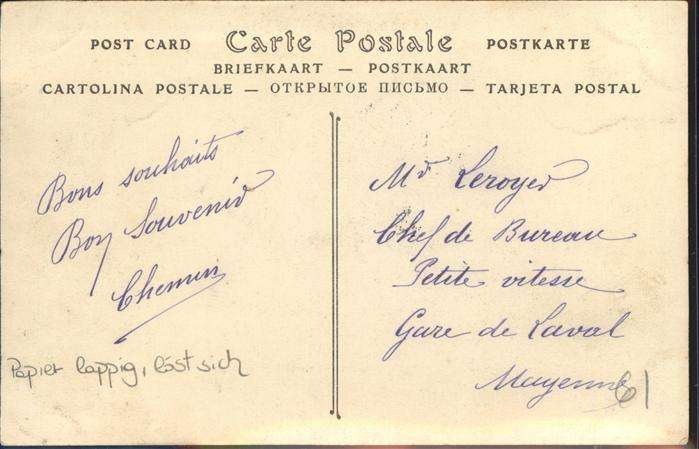 POST CARD Carte Postale POSTKARTE
BRIEFKAART — POSTKAART
CARTOLINA POSTALE — ОТКРЫТОЕ ПИСЬМО — TARJETA POSTAL
Bons souhaits
Bon Souvenir
Chemin
Papier lappig, löst sich
Mr Leroyer
Chef de Bureau
Petite vitesse
Gare de Laval
Mayenne
61